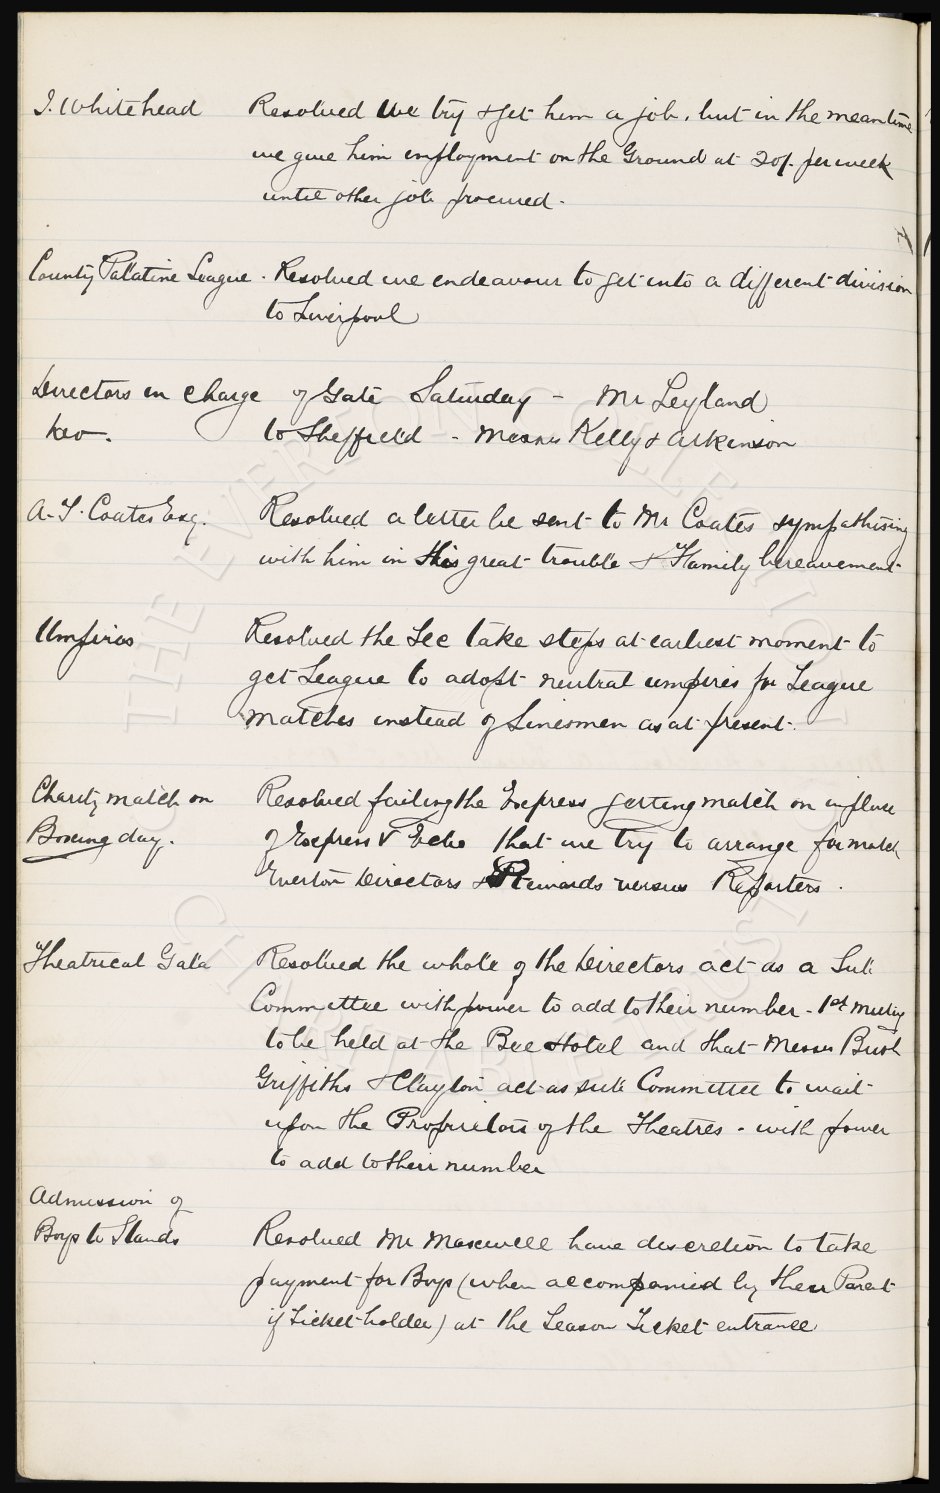 J. Whitehead Resolved we try & get him a job, but in the meantime
we give him employment on the Ground at 20/- per week
until other job procured.
County Palatine League. Resolved we endeavour to get into a different division
to Liverpool
Directors in charge of Gate Saturday - Mr Leyland
to Sheffield - Messrs Kelly & Atkinson
A. T. Coates Esq. Resolved a letter be sent to Mr Coates sympathising
with him in this great trouble & Family bereavement
Umpires Resolved the Sec take steps at earliest moment to
get League to adopt neutral umpires for League
matches instead of Linesmen as at present.
Charity match on Resolved failing the Express getting match on in place
Boxing day. of Express v Echo that we try to arrange for match
Everton Directors & Stewards versus Reporters.
Theatrical Gala Resolved the whole of the Directors act as a Sub
Committee with power to add to their number - 1st meeting
to be held at the Bee Hotel and that Messrs Bush
Griffiths & Clayton act as sub Committee to wait
upon the Proprietors of the Theatres - with power
to add to their number
Admission of
Boys to Stands Resolved Mr Maxwell have discretion to take
payment for Boys (when accompanied by their Parent
if Ticket-holder) at the Season Ticket entrance
THE EVERTON COLLECTION
CHARITABLE TRUST